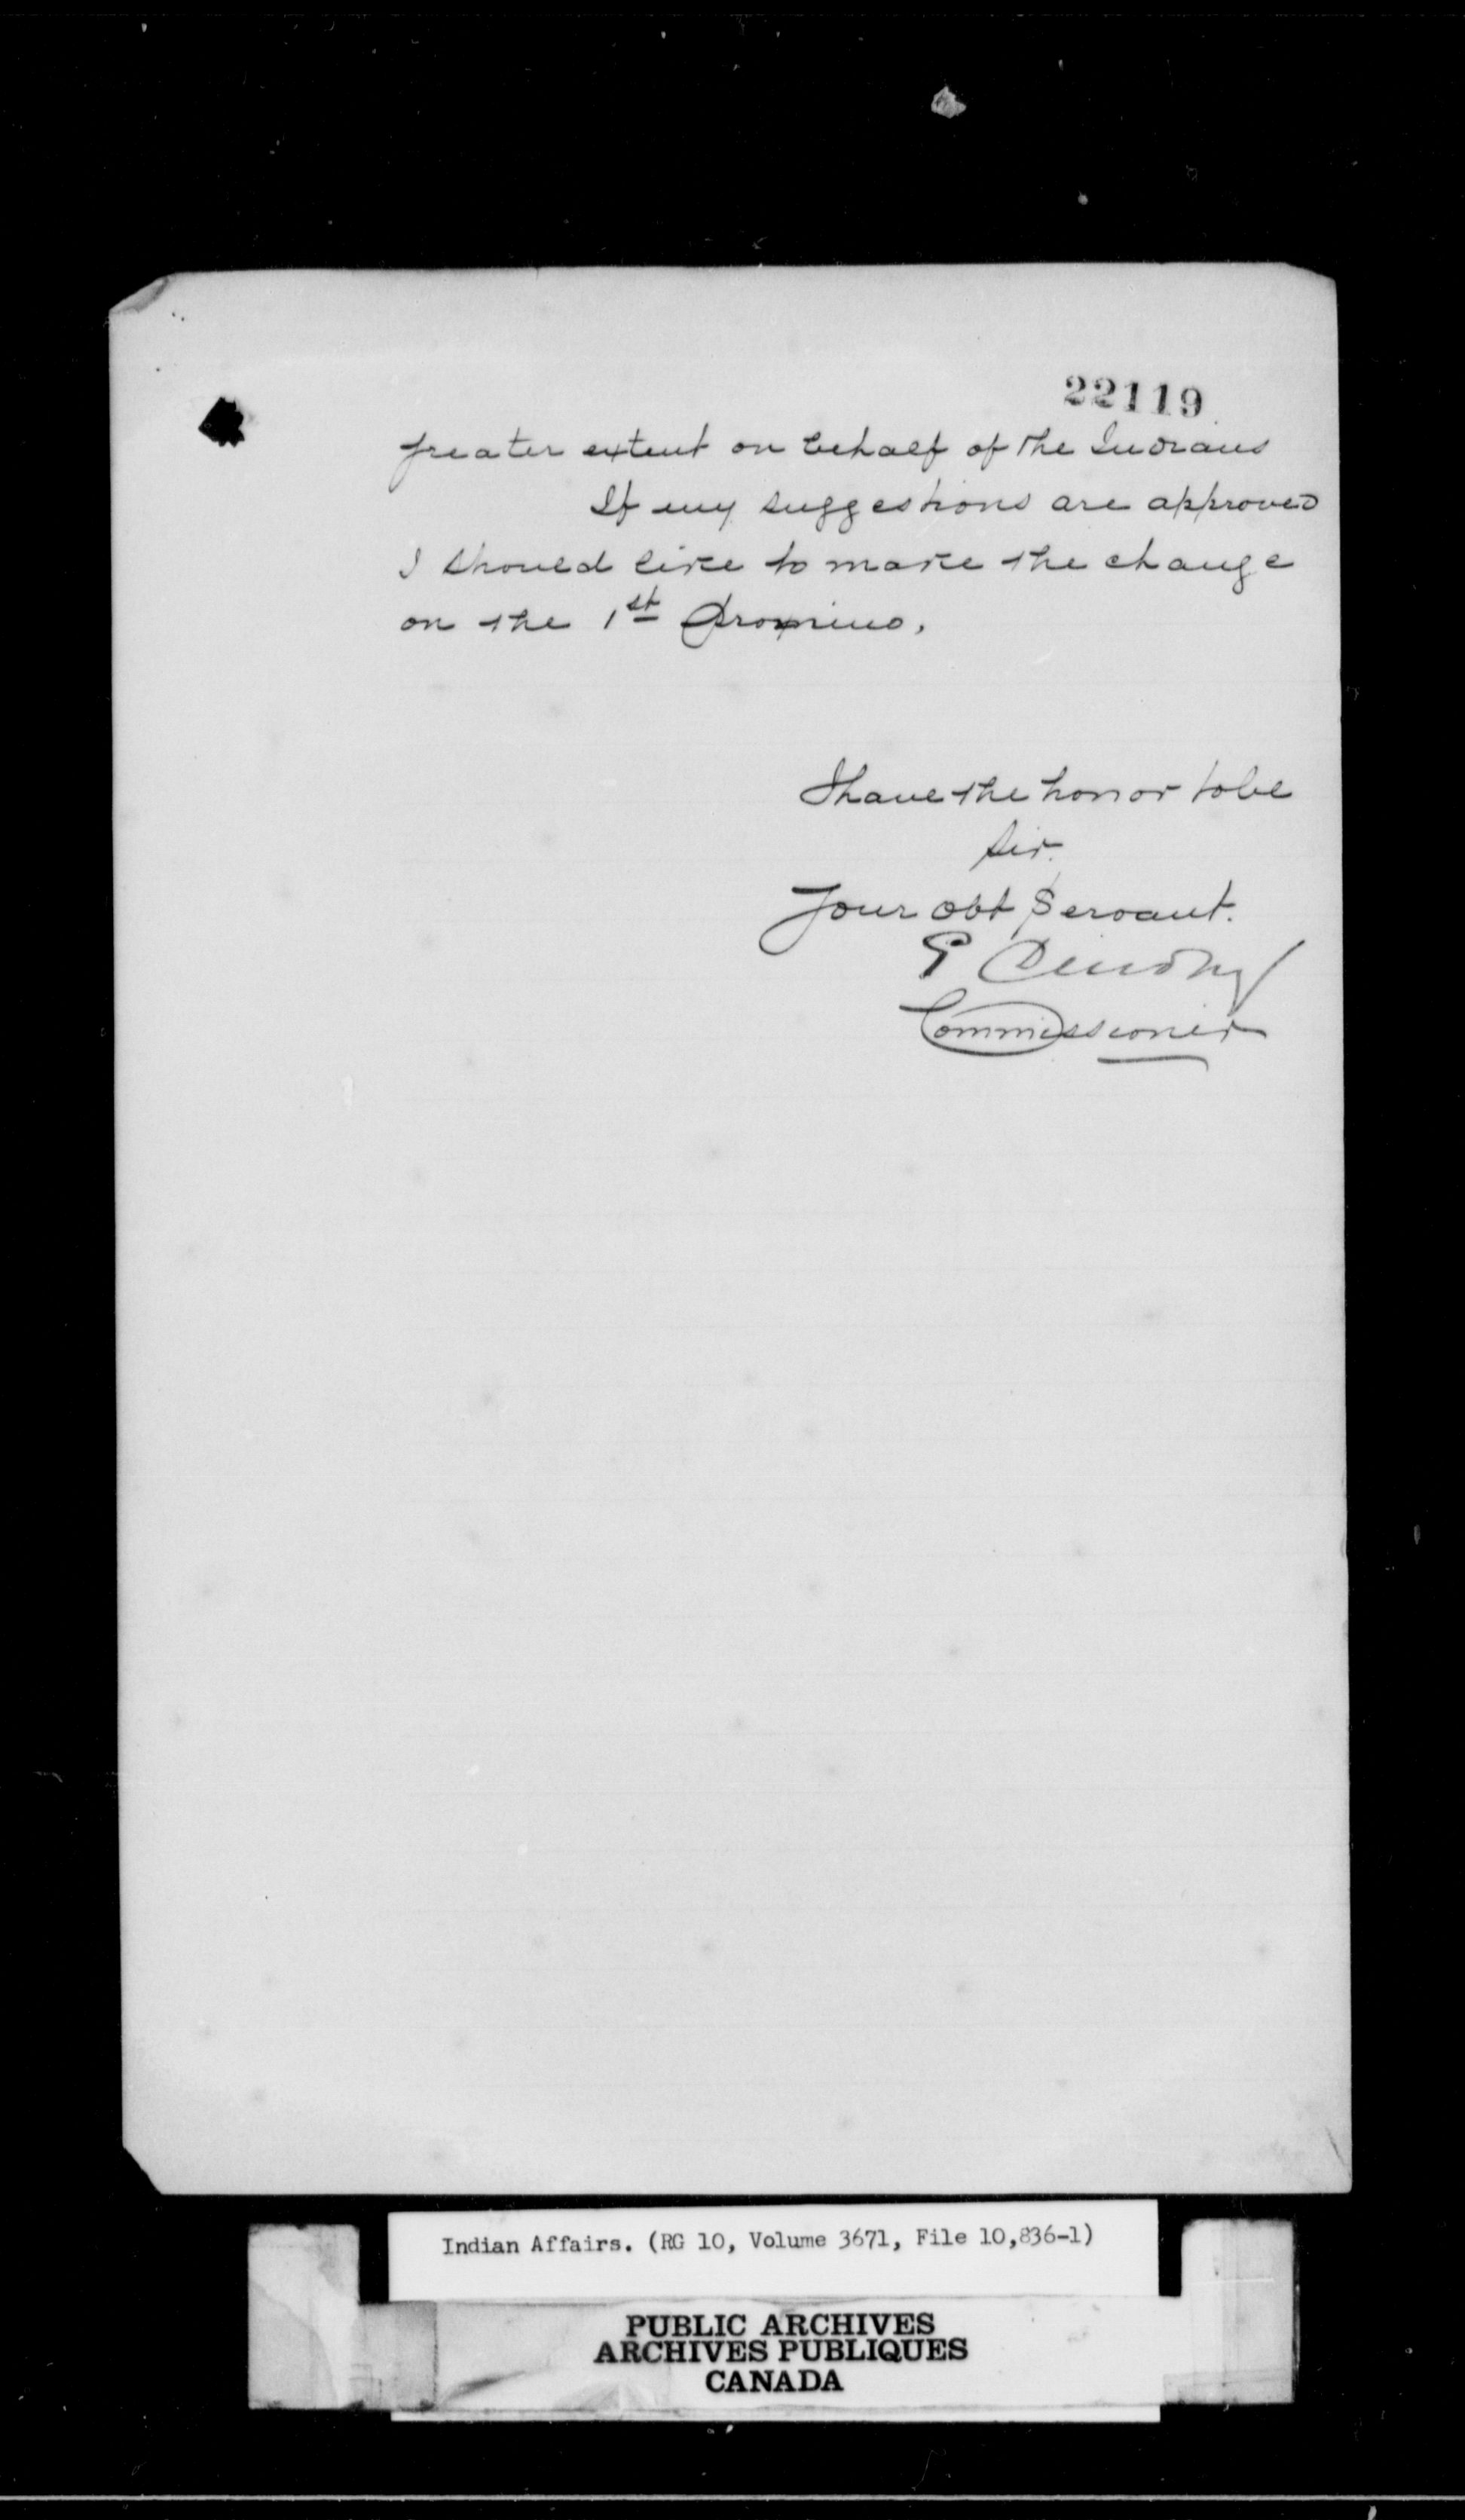 22119
greater extent on behalf of the Indians
If my suggestions are approved
I should like to make the change
on the 1st Proximo.
I have the honor to be
Sir.
Your obt Servant.
E Dewdney
Commissioner
Indian Affairs. (RG 10, Volume 3671, File 10,836-1)
PUBLIC ARCHIVES
ARCHIVES PUBLIQUES
CANADA